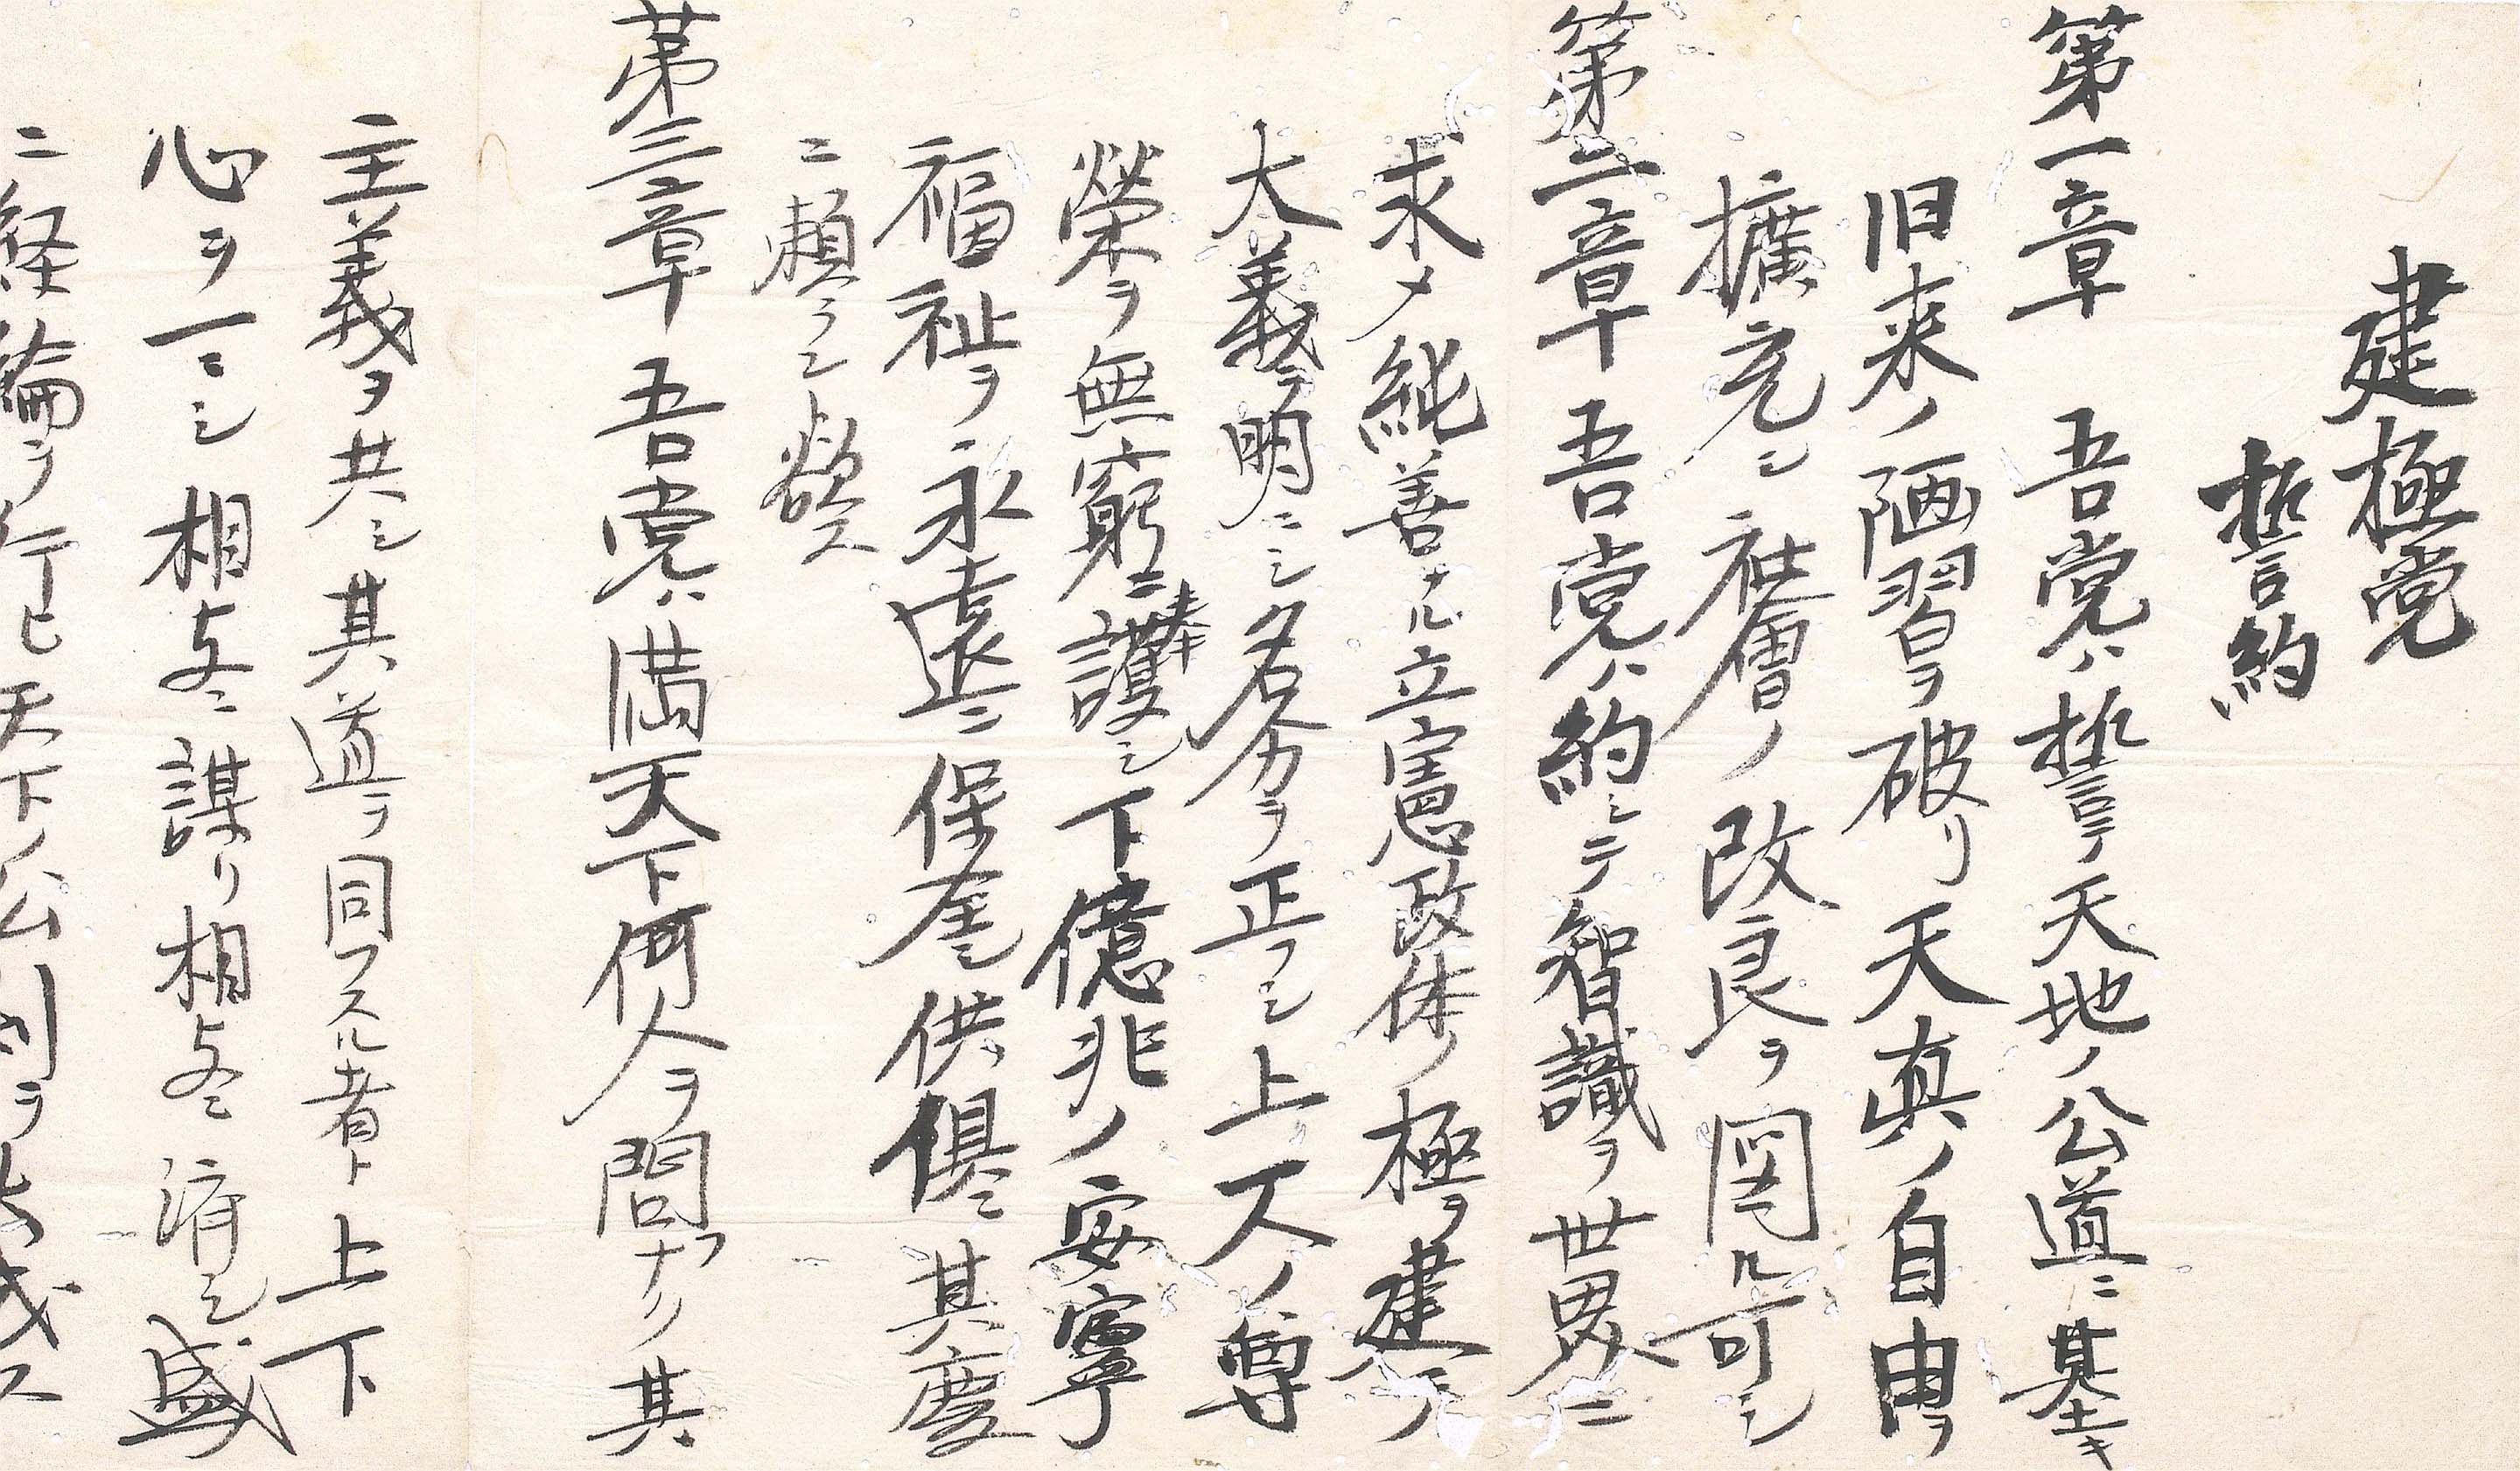 建極党
誓約
第一章　吾党ハ誓テ天地ノ公道ニ基キ
旧来ノ陋習ヲ破リ天真ノ自由ヲ
擴充シ社會ノ改良ヲ図ル可シ
第二章　吾党ハ約シテ智識ヲ世界ニ
求メ純善ナル立憲政体ノ極ヲ建テ
大義ヲ明ニシ名分ヲ正フシ上一人ノ尊
榮ヲ無窮ニ奉護シ下億兆ノ安寧
福祉ヲ永遠ニ保全シ供倶ニ其慶
ニ頼ラント欲ス
第三章　吾党ハ満天下何人ヲ問ハナリ其
主義ヲ共ニシ其道ヲ同フスル者ト上下
心ヲ一ニシ相与ニ謀リ相与ニ済シ盛
ニ経綸ヲ行ヒ天下ノ公利ヲ